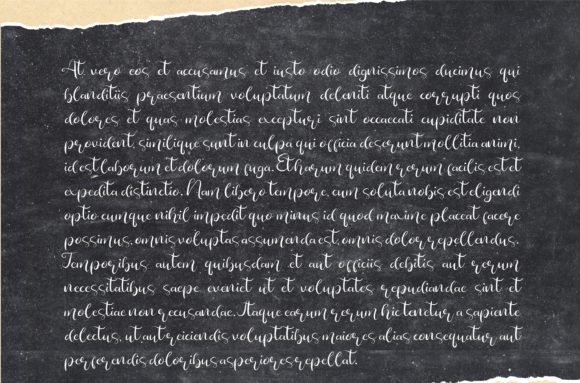 At vero eos et accusamus et iusto odio dignissimos ducimus qui
blanditiis praesentium voluptatum deleniti atque corrupti quos
dolores et quas molestias excepturi sint occaecati cupiditate non
provident, similique sunt in culpa qui officia deserunt mollitia animi,
id est laborum et dolorum fuga. Et harum quidem rerum facilis est et
expedita distinctio. Nam libero tempore, cum soluta nobis est eligendi
optio cumque nihil impedit quo minus id quod maxime placeat facere
possimus, omnis voluptas assumenda est, omnis dolor repellendus.
Temporibus autem quibusdam et aut officiis debitis aut rerum
necessitatibus saepe eveniet ut et voluptates repudiandae sint et
molestiae non recusandae. Itaque earum rerum hic tenetur a sapiente
delectus, ut aut reiciendis voluptatibus maiores alias consequatur aut
perferendis doloribus asperiores repellat.